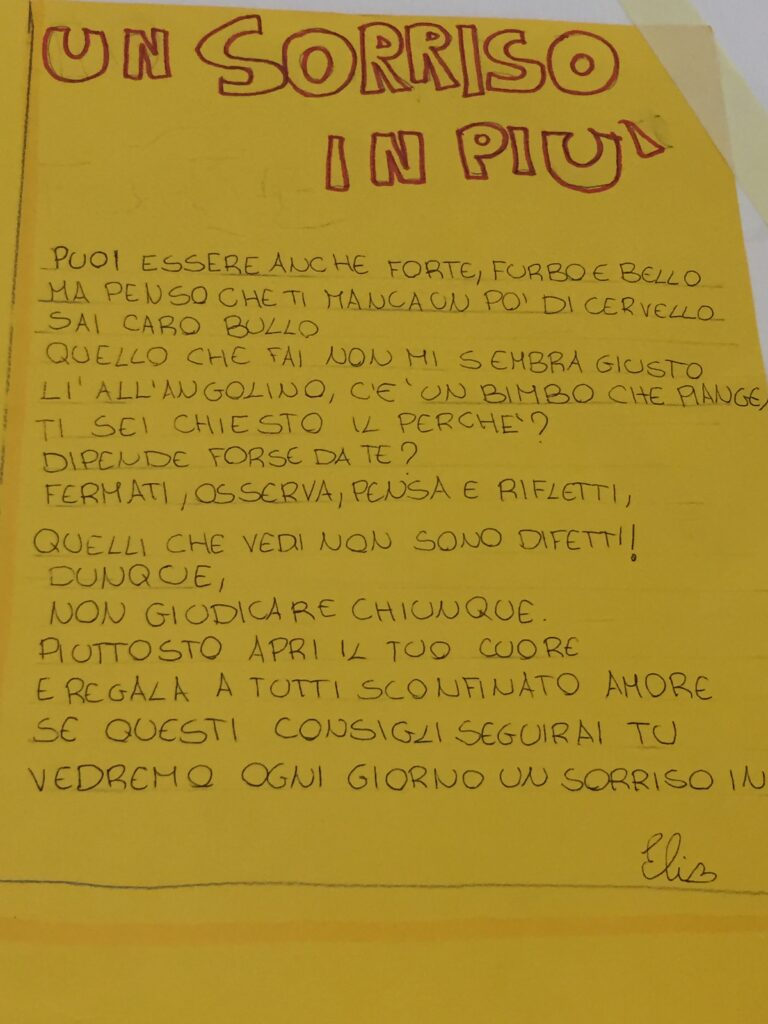 UN SORRISO
IN PIU'
PUOI ESSERE ANCHE FORTE, FURBO E BELLO
MA PENSO CHE TI MANCA UN PO' DI CERVELLO
SAI CARO BULLO
QUELLO CHE FAI NON MI SEMBRA GIUSTO
LI' ALL'ANGOLINO, C'E' UN BIMBO CHE PIANGE,
TI SEI CHIESTO IL PERCHE'?
DIPENDE FORSE DA TE?
FERMATI, OSSERVA, PENSA E RIFLETTI,
QUELLI CHE VEDI NON SONO DIFETTI!
DUNQUE,
NON GIUDICARE CHIUNQUE.
PIUTTOSTO APRI IL TUO CUORE
E REGALA A TUTTI SCONFINATO AMORE
SE QUESTI CONSIGLI SEGUIRAI TU
VEDREMO OGNI GIORNO UN SORRISO IN